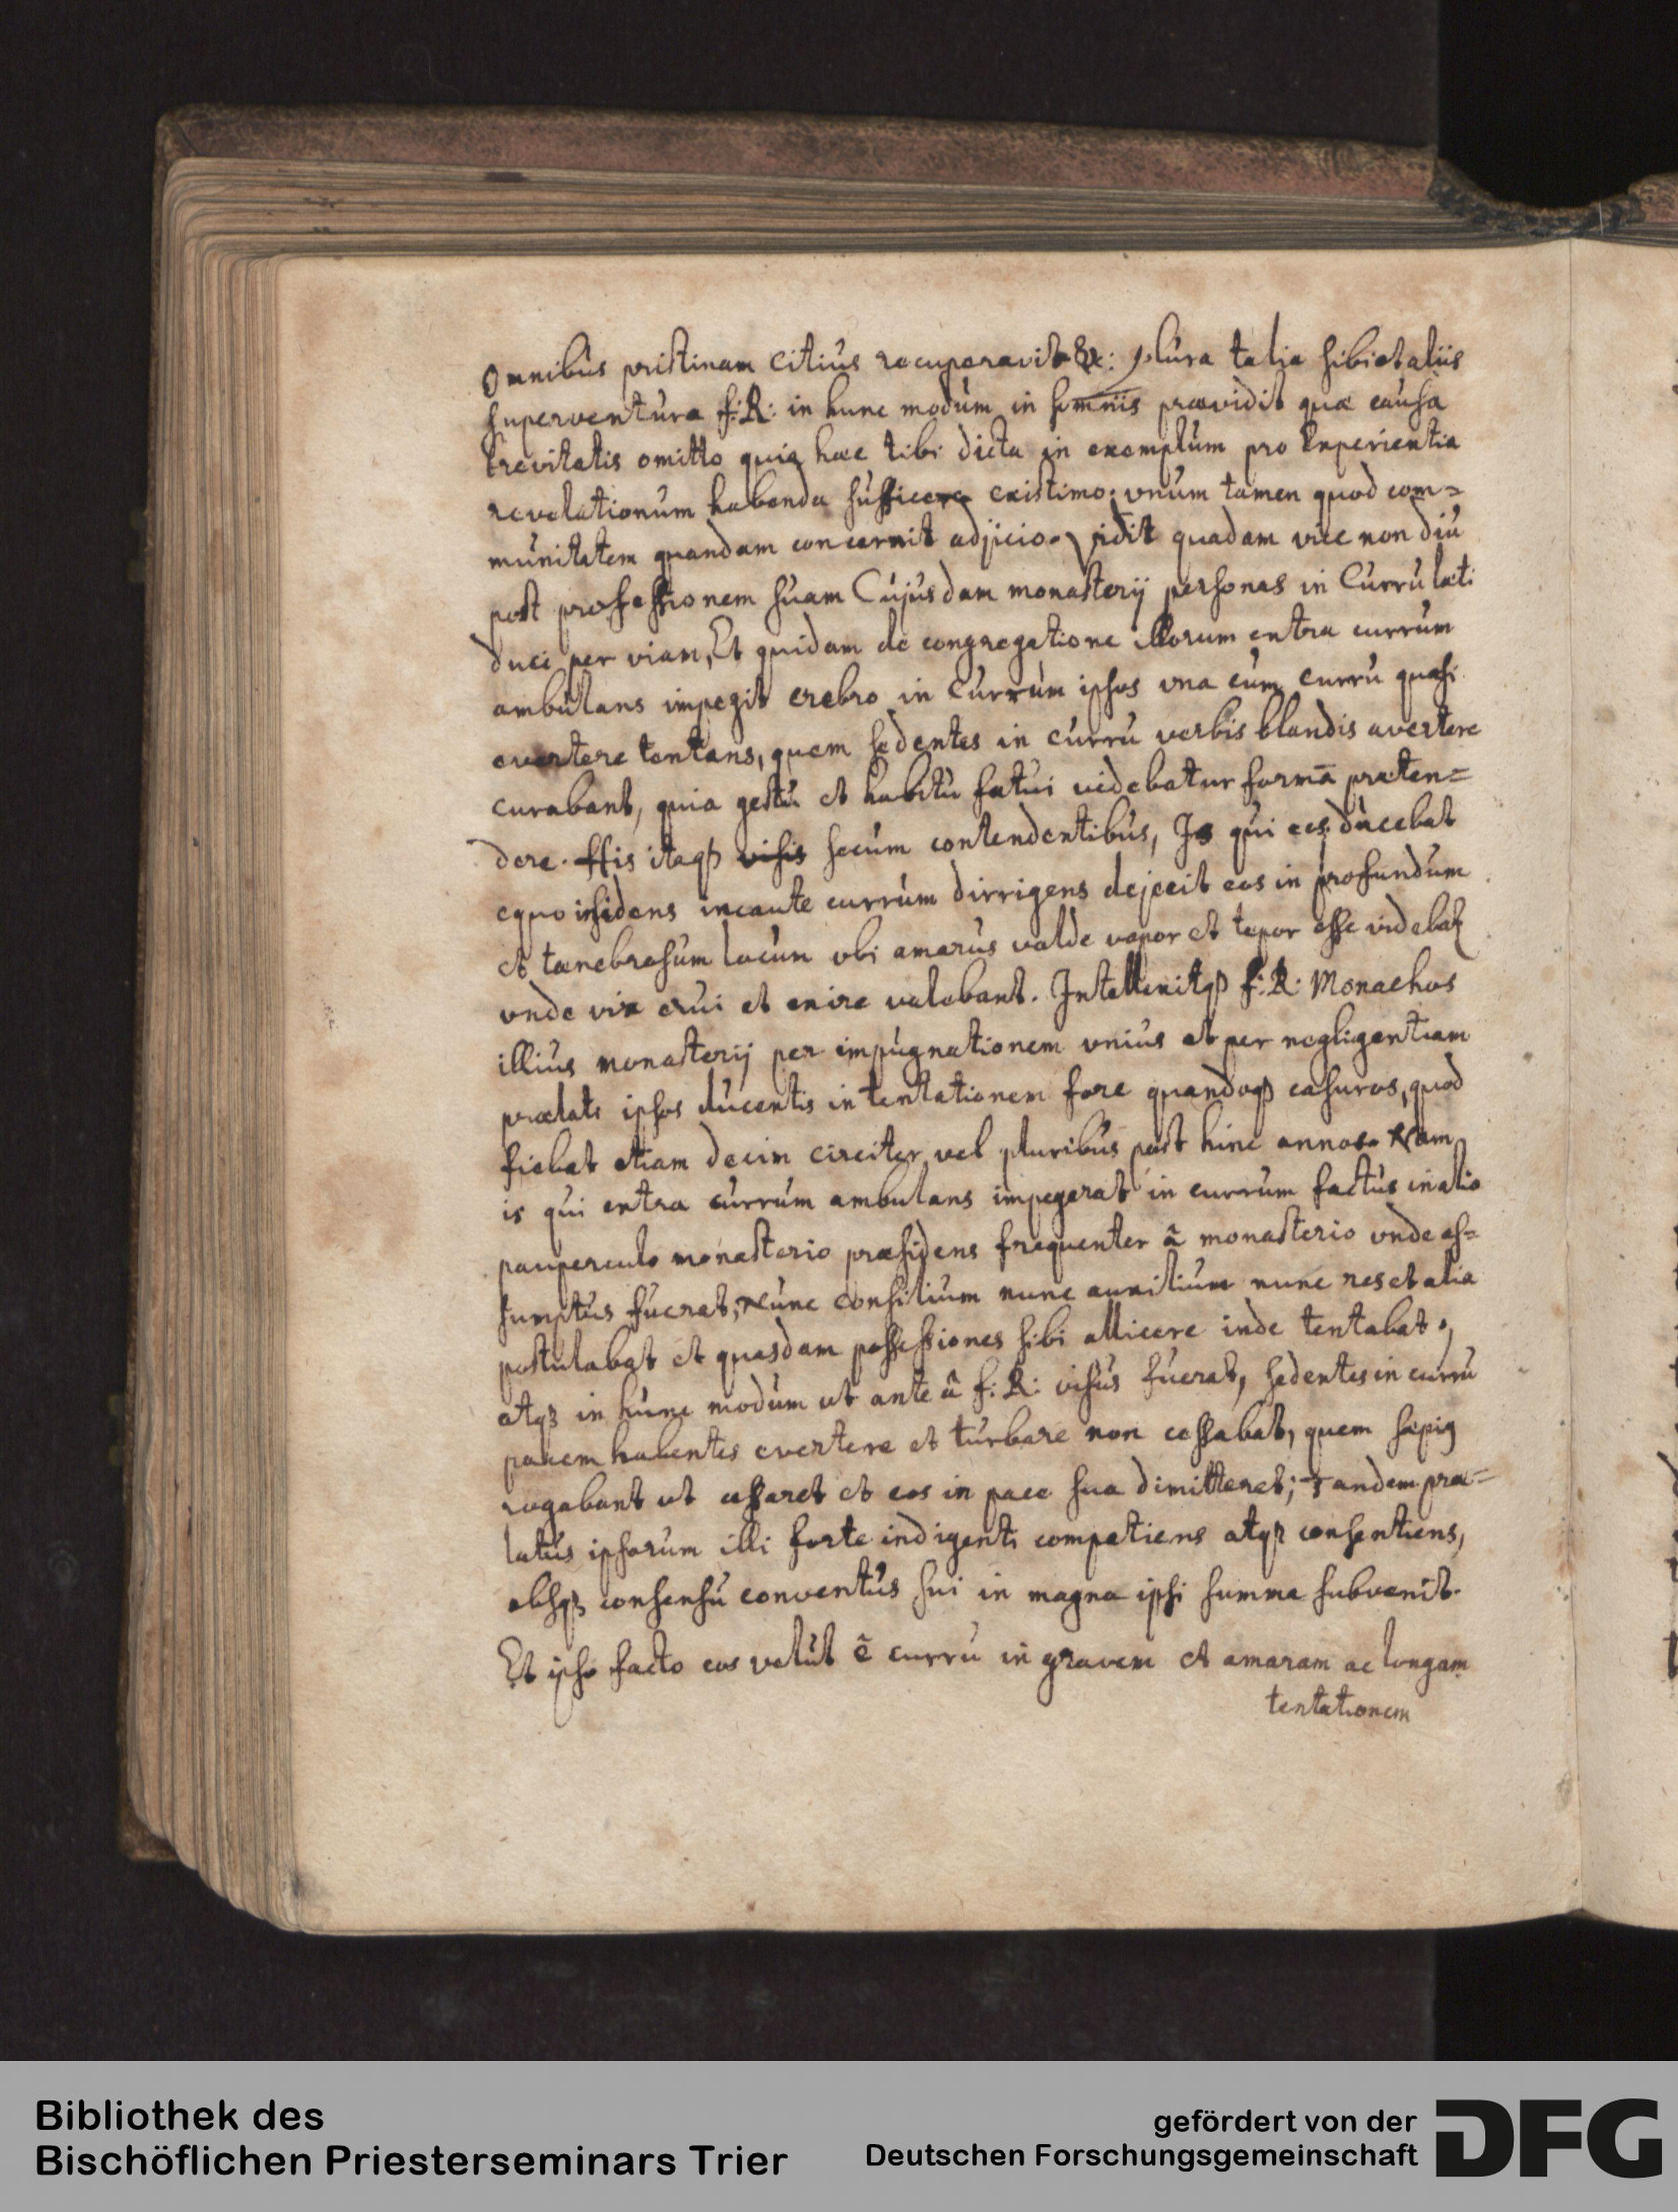 Omnibus pristinam citius recuperavit &c: plura talia sibi et aliis
superventura f: R: in hunc modum in somniis praevidit quae causa
brevitatis omitto quia haec tibi dicta in exemplum pro Experientia
revelationum habenda sufficere existimo: vnum tamen quod com=
munitatem quandam concernit adjicio. Vidit quadam vice non diu
post professionem suam Cujusdam monasterij personas in Curru laeti
duci per viam, Et quidam de congregatione illorum extra currum
ambulans impegit crebro in Currum ipsos vna cum curru quasi
evertere tentans, quem sedentes in curru verbis blandis avertere
curabant, quia gestu et habitu fatui videbatur formã praeten=
dere. His itaqꝫ secum contendentibus, Is qui eos ducebat
equo insidens incaute currum dirrigens dejecit eos in profundum
et taenebrosum lacum vbi amarus valde vapor et tepor esse videbatꝛ
vnde vix erui et exire valebant. Intellexitqꝫ f: R: Monachos
illius monasterij per impugnationem vnius et per negligentiam
praelati ipsos ducentis in tentationem fore quandoqꝫ casuros, quod
fiebat etiam decim circiter vel pluribus post hinc annos. Nam
is qui extra currum ambulans impegerat in currum factus in alio
pauperculo monasterio praesidens frequenter ã monasterio vnde as=
sumptus fuerat, Nunc consilium nunc auxilium nunc res et alia
postulabat et quasdam possessiones sibi allicere inde tentabat,
atqꝫ in hunc modum ut ante â f: R: visus fuerat, sedentes in curru
pacem habentes evertere et turbare non cessabat, quem saepiꝯ
rogabant ut cessaret et eos in pace sua dimitteret; Tandem prae=
latus ipsorum illi forte indigenti compatiens atqꝫ consentiens,
absqꝫ consensu conventus sui in magna ipsi summa subvenit.
Et ipso facto eos velut ẽ curru in gravem et amaram ac longam
tentationem
Bibliothek des
Bischöflichen Priesterseminars Trier
gefördert von der
Deutschen Forschungsgemeinschaft
DFG